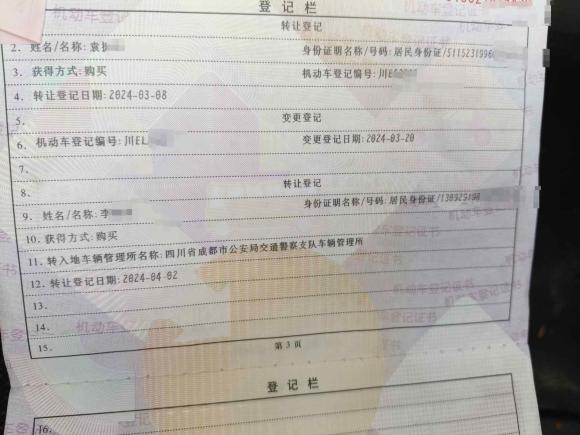 登记栏
转让登记
2. 姓名/名称:袁 身份证明名称/号码:居民身份证/5115231996
3. 获得方式:购买 机动车登记编号:川E
4. 转让登记日期:2024-03-08
5. 变更登记
6. 机动车登记编号:川EL 变更登记日期:2024-03-20
7.
8. 转让登记
9. 姓名/名称:李 身份证明名称/号码:居民身份证/130929198
10. 获得方式:购买
11. 转入地车辆管理所名称:四川省成都市公安局交通警察支队车辆管理所
12. 转让登记日期:2024-04-02
13.
14.
15.
第3页
登记栏
16.